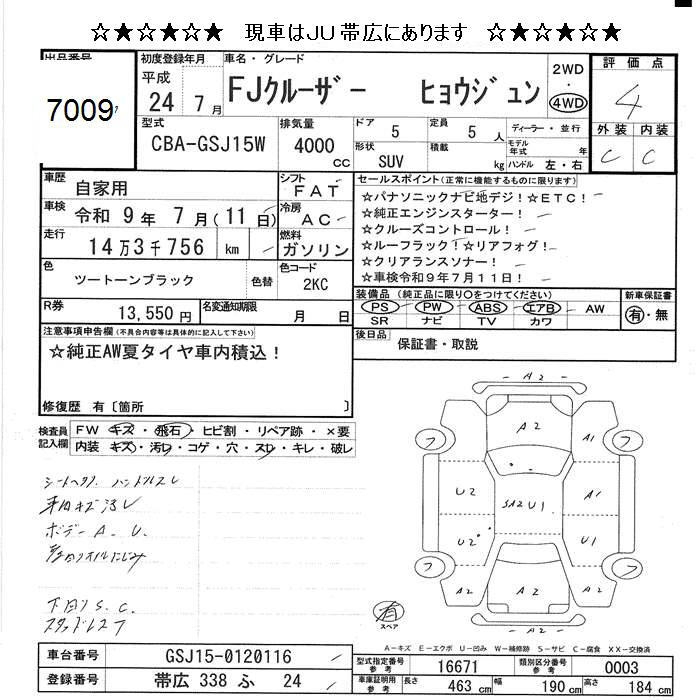 ☆★☆★☆★☆ 現車はJU帯広にあります ☆★☆★☆★☆
出品番号 初度登録年月 車名・グレード 評価点
7009 平成 24 年 7 月 FJクルーザー ヒョウジュン 2WD ・ 4WD 4
型式 排気量 ドア 定員 ディーラー・並行 外装 内装
CBA-GSJ15W 4000 cc 5 5 人 モデル年式 年 C C
形状 SUV 積載 kg ハンドル 左・右
車歴 自家用 シフト FAT
車検 令和 9 年 7 月(11 日) 冷房 AC
走行 14 万 3 千 756 km 燃料 ガソリン
色 ツートーンブラック 色替 色コード 2KC
R券 13,550 円 名変通知期限 月 日
セールスポイント(正常に機能するものに限ります)
☆パナソニックナビ地デジ!☆ETC!
☆純正エンジンスターター!
☆クルーズコントロール!
☆ルーフラック!☆リアフォグ!
☆クリアランスソナー!
☆車検令和9年7月11日!
装備品(純正品に限り○をつけてください) 新車保証書
PS PW ABS エアB AW 有・無
SR ナビ TV カワ
後日品 保証書・取説
注意事項申告欄(不具合内容等は具体的に記入して下さい)
☆純正AW夏タイヤ車内積込!
修復歴 有〔箇所 〕
検査員記入欄 FW キズ・飛石・ヒビ割・リペア跡・×要
内装 キズ・汚レ・コゲ・穴・スレ・キレ・破レ
シートヘタリ ハンドルスレ
車内キズ汚レ
ボデー A. U.
下回り S. C.
A2
A2
フ A1 フ
U2 SA2U1 A1
U2 U1
フ A2 A2 A2 フ
A2
有
スペア
A-キズ E-エクボ U-凹み W-補修跡 S-サビ C-腐食 XX-交換済
車台番号 GSJ15-0120116 型式指定番号 参考 16671 類別区分番号 参考 0003
登録番号 帯広 338 ふ 24 車庫証明用 参考 長さ 463 cm 幅 190 cm 高さ 184 cm